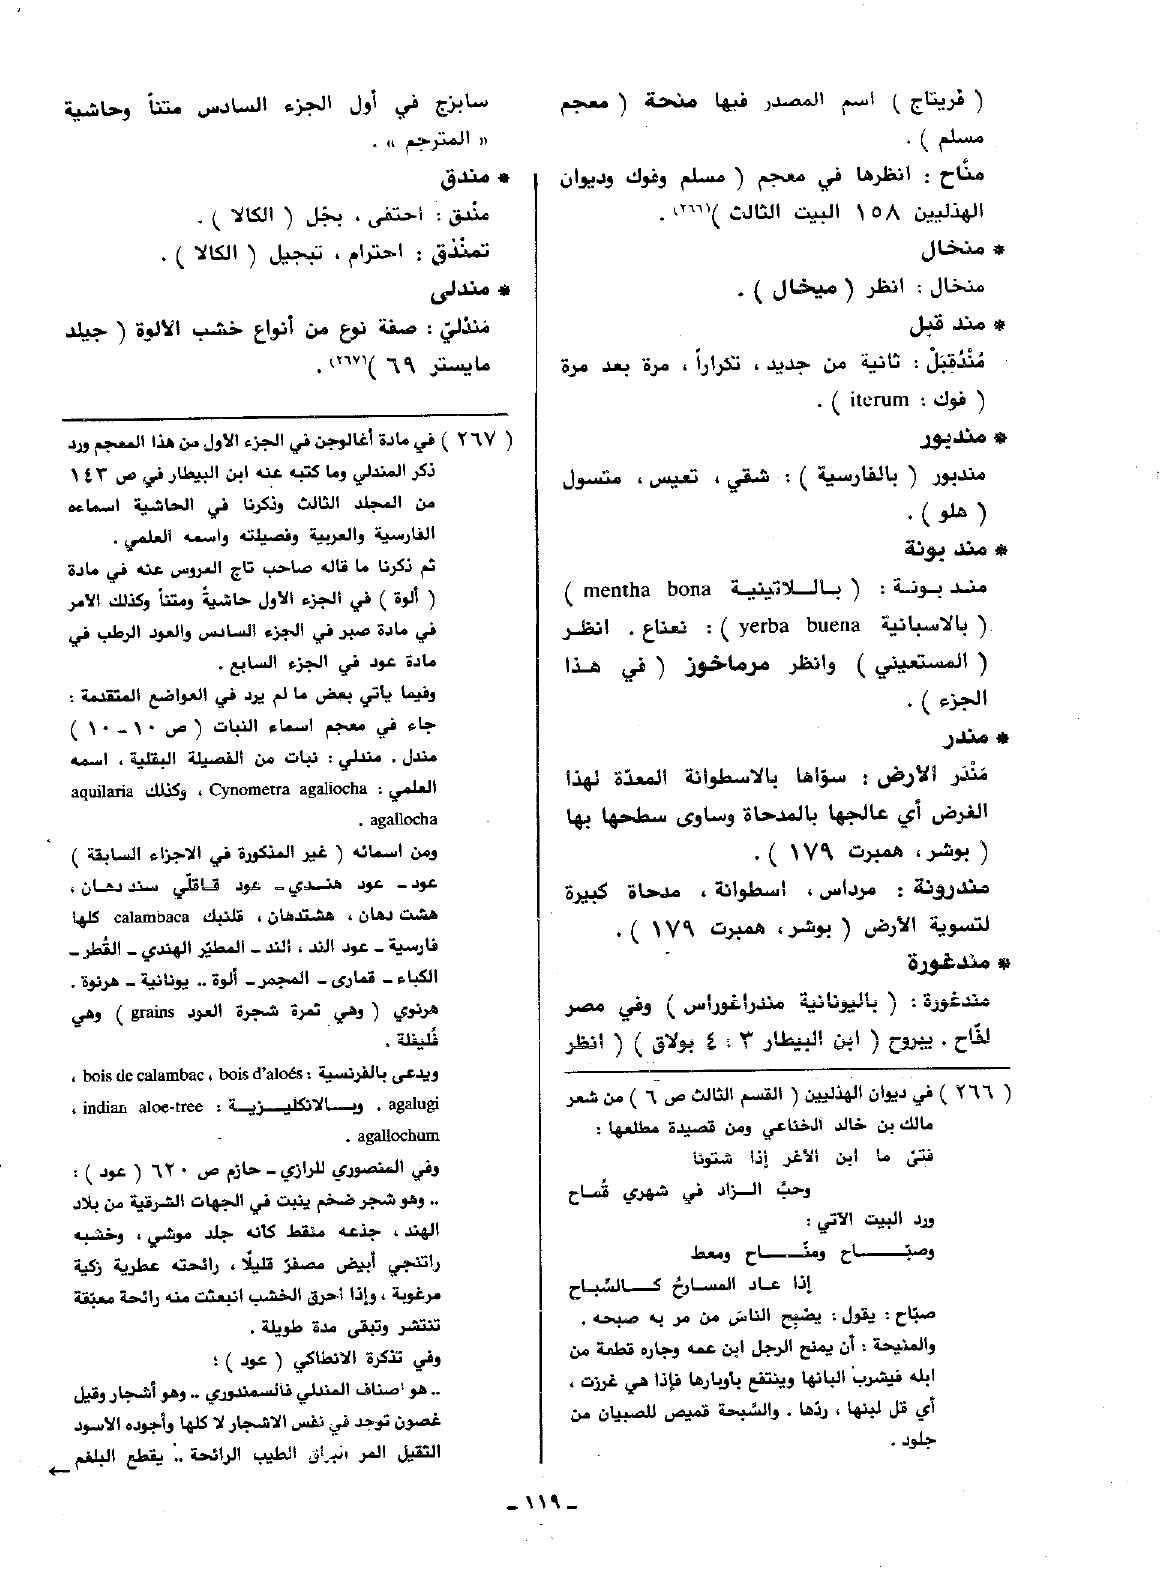 ( فريتاج ) اسم المصدر فيها منحة ( معجم
مسلم ) .
منّاح : انظرها في معجم ( مسلم وفوك وديوان
الهذليين ١٥٨ البيت الثالث )(٢٦٦) .
* منخال
منخال : انظر ( ميخال ) .
* مند قبل
مُنْدُقبَلْ : ثانية من جديد ، تكراراً ، مرة بعد مرة
( فوك : iterum ) .
* منديور
منديور ( بالفارسية ) : شقي ، تعيس ، متسول
( هلو ) .
* مند بونة
مند بونة : ( باللاتينية mentha bona )
( بالاسبانية yerba buena ) : نعناع . انظر
( المستعيني ) وانظر مرماخوز ( في هذا
الجزء ) .
* مندر
مَنْدَر الأرض : سوّاها بالاسطوانة المعدّة لهذا
الغرض أي عالجها بالمدحاة وساوى سطحها بها
( بوشر ، همبرت ١٧٩ ) .
مندرونة : مرداس ، اسطوانة ، مدحاة كبيرة
لتسوية الأرض ( بوشر ، همبرت ١٧٩ ) .
* مندغورة
مندغورة : ( باليونانية مندراغوراس ) وفي مصر
لفّاح . يبروح ( ابن البيطار ٣ : ٤ بولاق ) ( انظر
( ٢٦٦ ) في ديوان الهذليين ( القسم الثالث ص ٦ ) من شعر
مالك بن خالد الخناعي ومن قصيدة مطلعها :
فتىً ما ابن الأغر إذا شتونا
وحبُّ الزاد في شهري قُماح
ورد البيت الآتي :
وصبّاح ومنّاح ومعط
إذا عاد المسارحُ كالسُّباح
صبّاح : يقول : يصْبِح الناسَ من مر به صبحه .
والمنيحة : أن يمنح الرجل ابن عمه وجاره قطعة من
ابله فيشرب البانها وينتفع بأوبارها فإذا هي غرزت ،
أي قل لبنها ، ردّها . والسُّبحة قميص للصبيان من
جلود .
سابزج في أول الجزء السادس متناً وحاشية
« المترجم » .
* مندق
مندْق : احتفى ، بجّل ( الكالا ) .
تمنْذق : احترام ، تبجيل ( الكالا ) .
* مندلى
مَندْليّ : صفة نوع من أنواع خشب الألوة ( جيلد
مايستر ٦٩ )(٢٦٧) .
( ٢٦٧ ) في مادة أغالوجن في الجزء الأول من هذا المعجم ورد
ذكر المندلي وما كتبه عنه ابن البيطار في ص ١٤٣
من المجلد الثالث وذكرنا في الحاشية اسماءه
الفارسية والعربية وفصيلته واسمه العلمي .
ثم ذكرنا ما قاله صاحب تاج العروس عنه في مادة
( ألوة ) في الجزء الأول حاشيةً ومتناً وكذلك الأمر
في مادة صبر في الجزء السادس والعود الرطب في
مادة عود في الجزء السابع .
وفيما يأتي بعض ما لم يرد في المواضع المتقدمة :
جاء في معجم اسماء النبات ( ص ١٠ - ١٠ )
مندل . مندلي : نبات من الفصيلة البقلية ، اسمه
العلمي : Cynometra agaliocha ، وكذلك aquilaria
agallocha .
ومن اسمائه ( غير المذكورة في الاجزاء السابقة )
عود - عود هندي - عود قاقلّي سندهان ،
هشت دهان ، هشتدهان ، قلنبك calambaca كلها
فارسية - عود الند ، الند - المطيّر الهندي - القُطر -
الكباء - قمارى - المجمر - ألوة .. يونانية - هرنوة .
هرنوي ( وهي ثمرة شجرة العود grains ) وهي
قُليفلة .
ويدعى بالفرنسية : bois de calambac ، bois d'aloés ،
agalugi . وبالانكليزية : indian aloe-tree ،
agallochum .
وفي المنصوري للرازي - حازم ص ٦٢٠ ( عود ) :
.. وهو شجر ضخم ينبت في الجهات الشرقية من بلاد
الهند ، جذعه منقط كأنه جلد موشي ، وخشبه
راتنجي أبيض مصفرّ قليلًا ، رائحته عطرية زكية
مرغوبة ، وإذا أحرق الخشب انبعثت منه رائحة معبّقة
تنتشر وتبقى مدة طويلة .
وفي تذكرة الانطاكي ( عود ) :
.. هو أصناف المندلي فالسمندوري .. وهو أشجار وقيل
غصون توجد في نفس الاشجار لا كلها وأجوده الأسود
الثقيل المر البراق الطيب الرائحة .. يقطع البلغم
←
- ١١٩ -